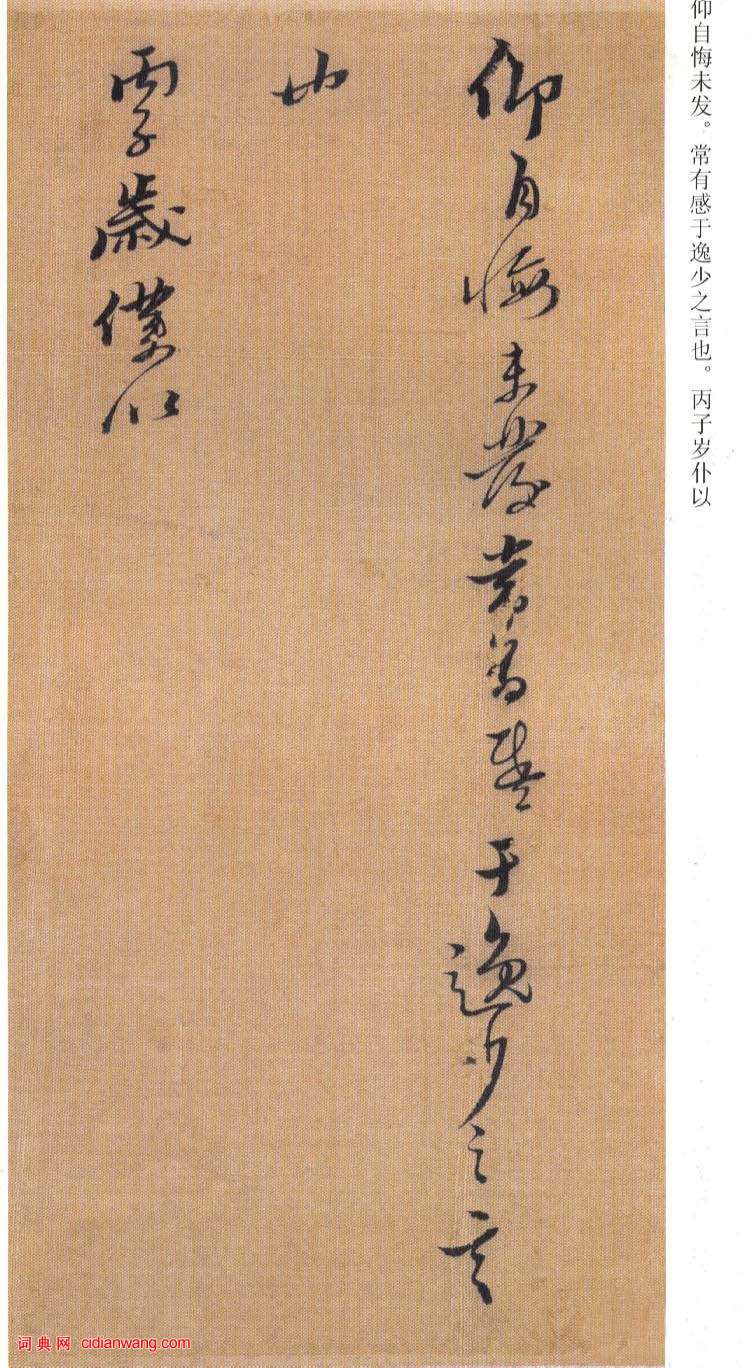 仰自悔未发。常有感于逸少之言也。丙子岁仆以
仰自悔未發常有感于逸少之言
也
丙子歲僕以
词典网 cidianwang.com